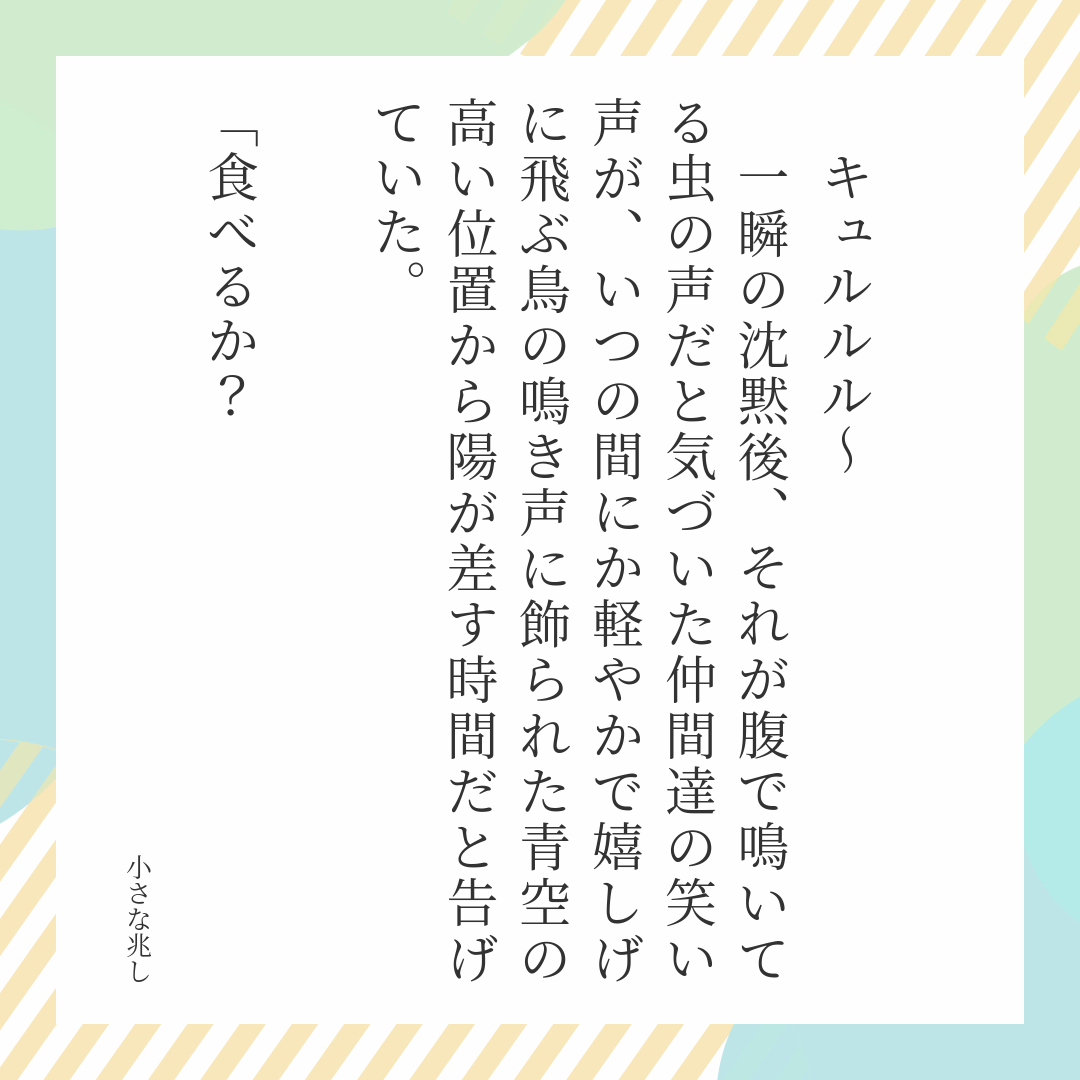 キュルルル〜
一瞬の沈黙後、それが腹で鳴いて
る虫の声だと気づいた仲間達の笑い
声が、いつの間にか軽やかで嬉しげ
に飛ぶ鳥の鳴き声に飾られた青空の
高い位置から陽が差す時間だと告げ
ていた。
「食べるか?
小さな兆し